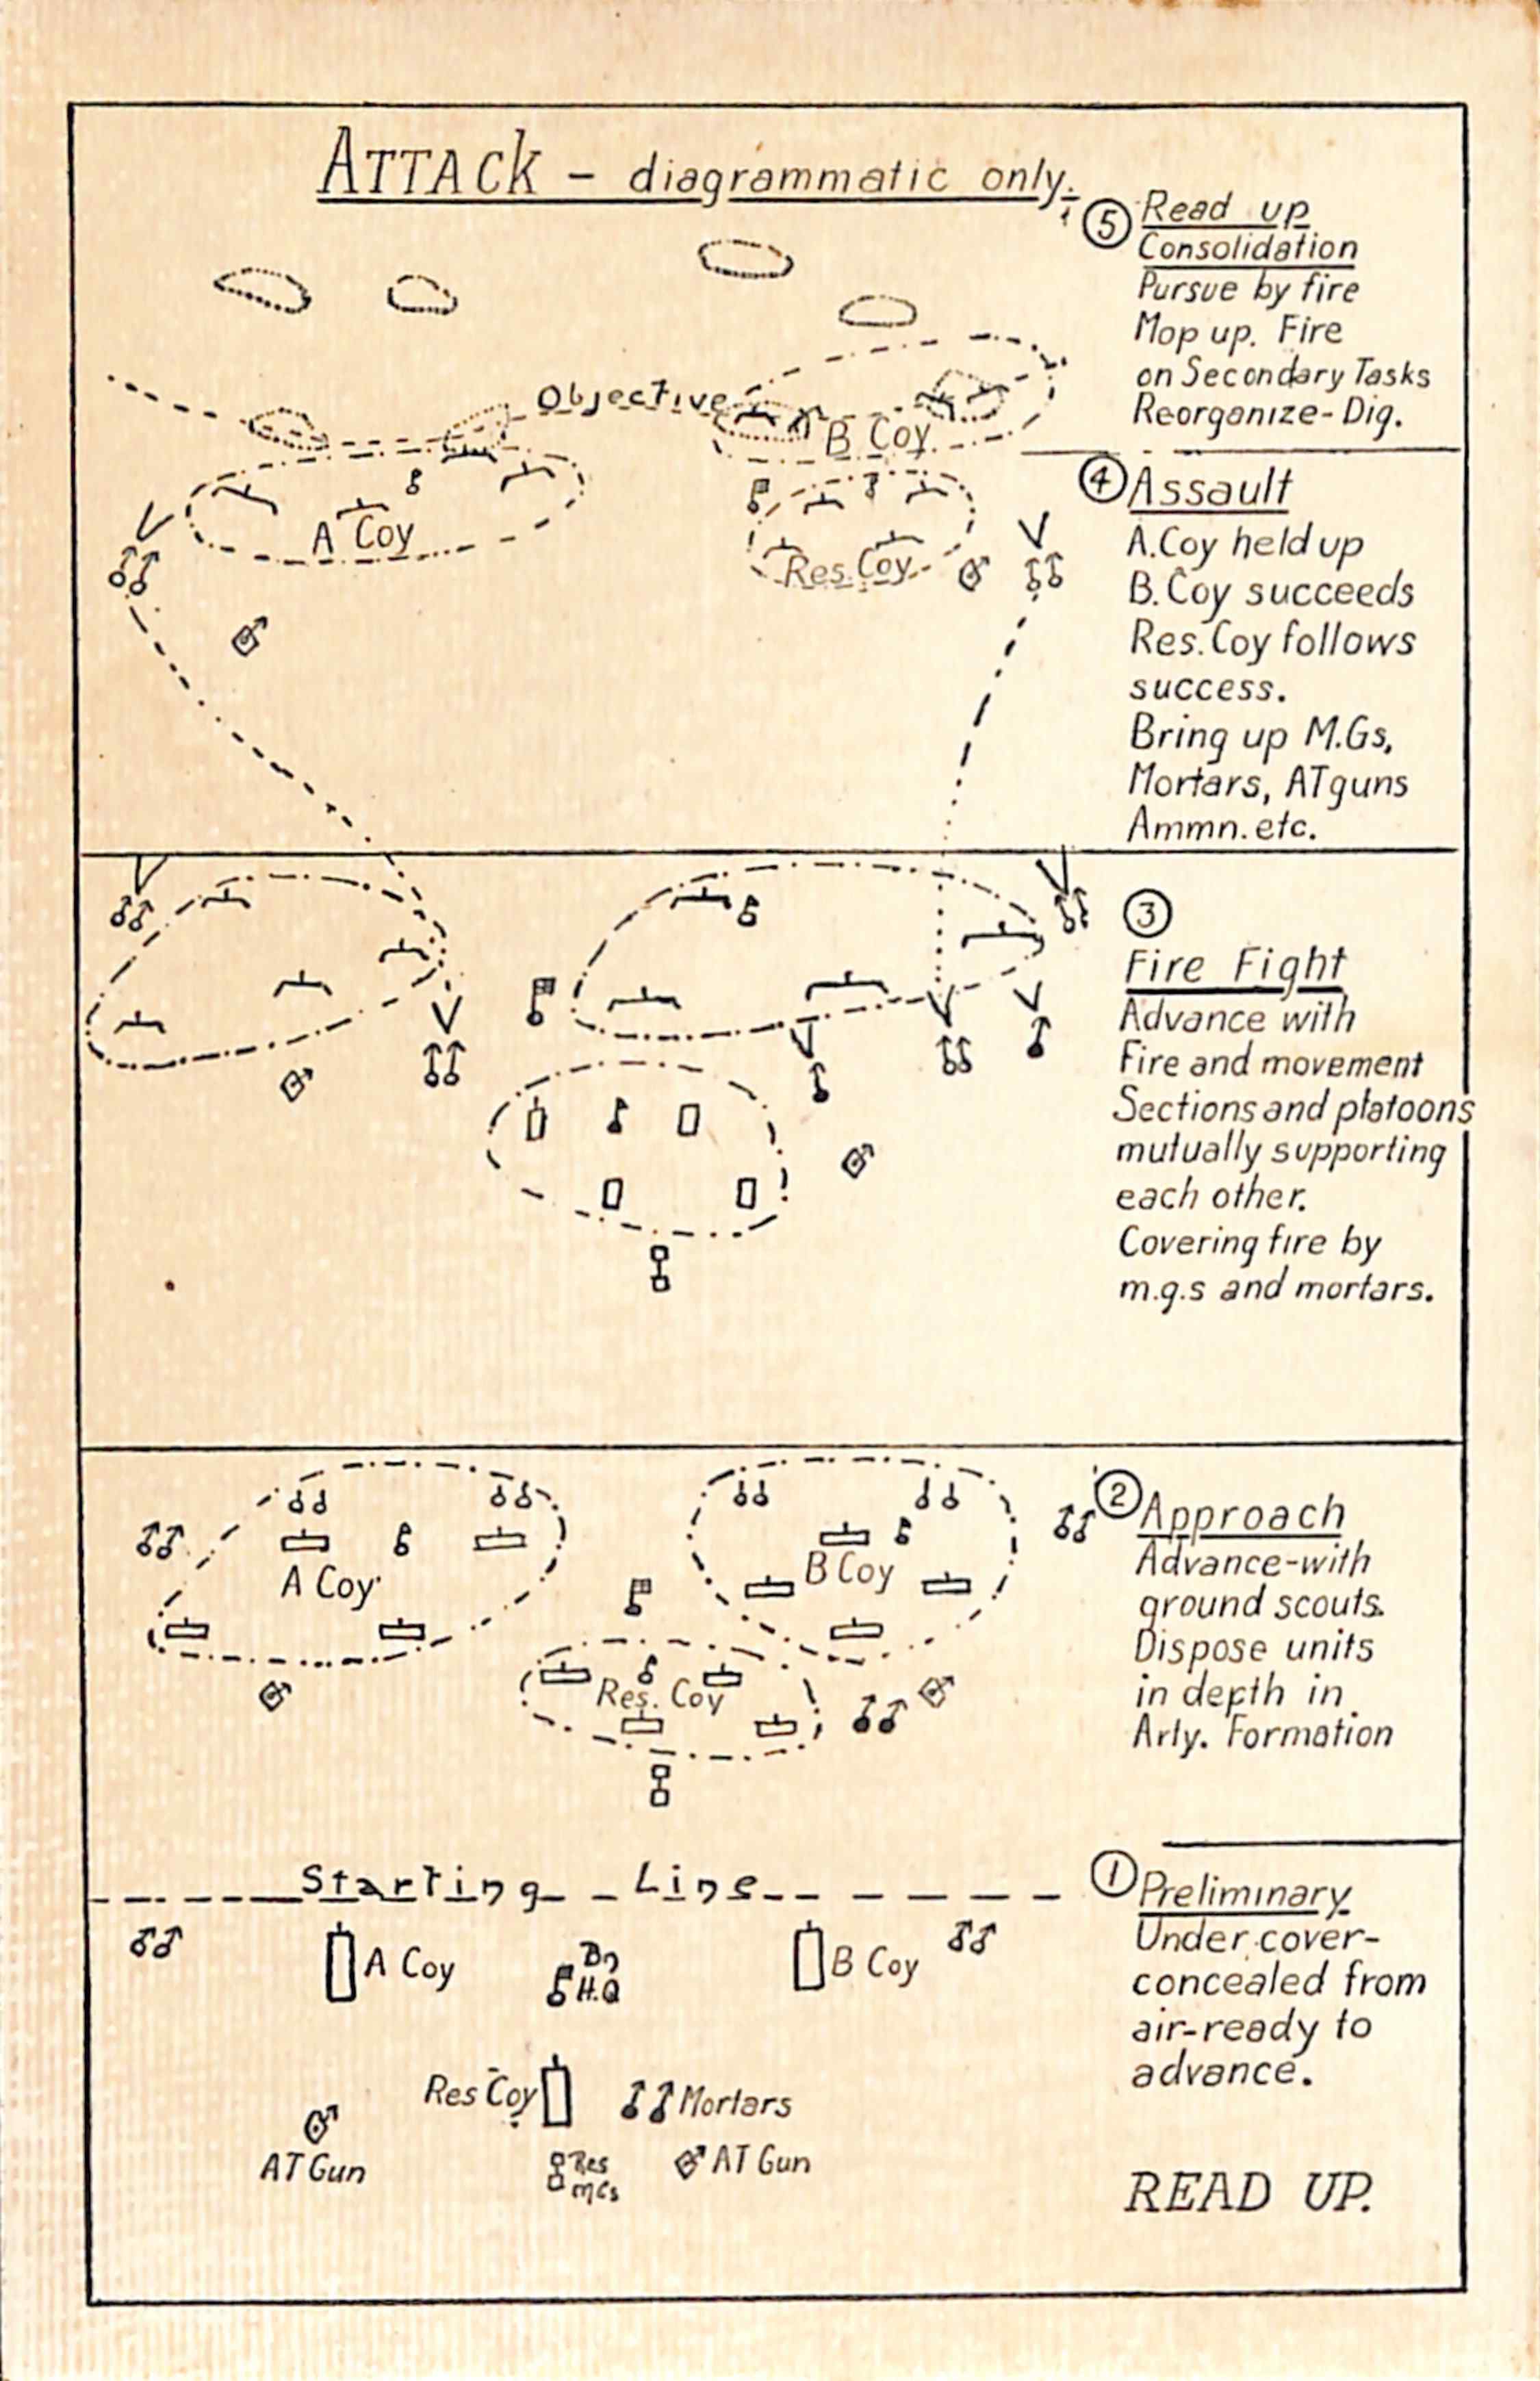 ATTACK - diagrammatic only.
⑤ Read up
Consolidation
Pursue by fire
Mop up. Fire
on Secondary Tasks
Reorganize - Dig.
Objective
B Coy
A Coy
Res. Coy
④ Assault
A. Coy held up
B. Coy succeeds
Res. Coy follows
success.
Bring up M.Gs,
Mortars, AT guns
Ammn. etc.
③
Fire Fight
Advance with
Fire and movement
Sections and platoons
mutually supporting
each other.
Covering fire by
m.g.s and mortars.
② Approach
Advance-with
ground scouts.
Dispose units
in depth in
Arty. Formation
A Coy
B Coy
Res. Coy
Starting Line
① Preliminary
Under cover-
concealed from
air-ready to
advance.
A Coy
Bn
H.Q
B Coy
Res Coy
Mortars
AT Gun
Res
AT Gun
READ UP.